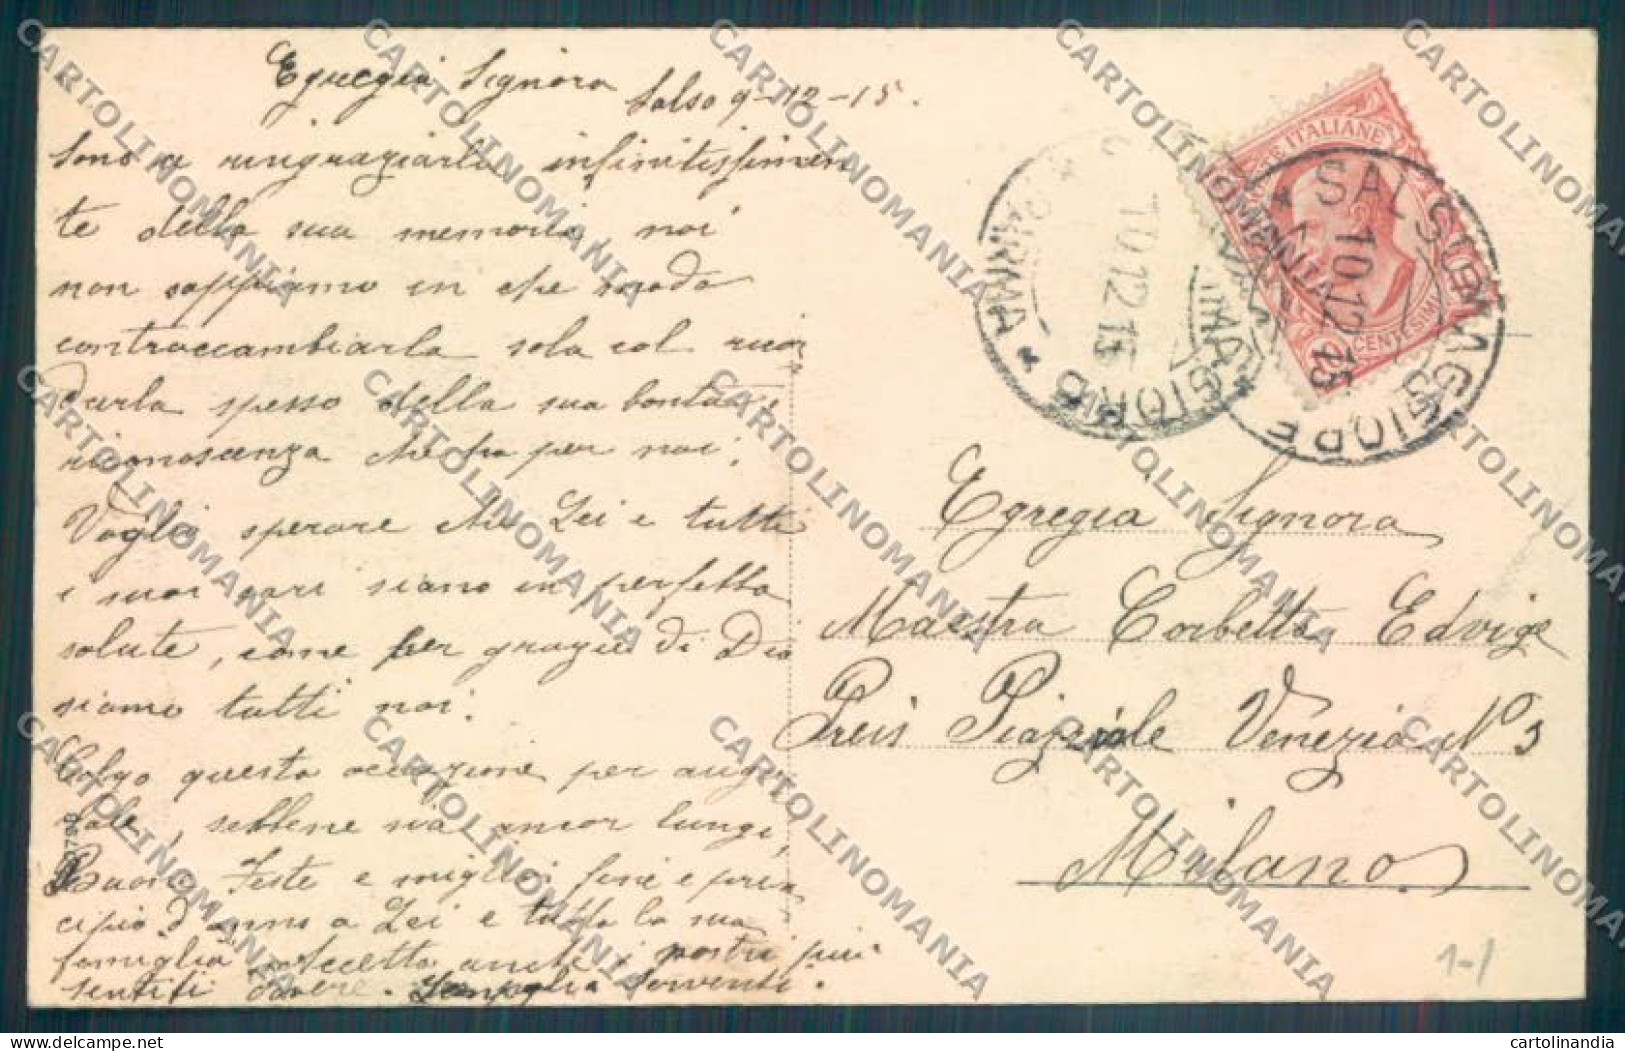 Egregia Signora
Salso 9-12-15.
Sono a ringraziarla infinitissimamen
te della sua memoria, noi
non sappiamo in che modo
contraccambiarla sola col ricor
darla spesso della sua bontà e
riconoscenza che ha per noi.
Voglio sperare che Lei e tutti
i suoi cari siano in perfetta
salute, come per grazie di Dio
siamo tutti noi.
Colgo questa occazione per augu
rale, sebbene sia ancor lungi,
Buone Feste e miglior fine e prin
cipio d'anno a Lei e tutta la sua
famiglia. Accetta anche i nostri più
sentiti dovere. Famiglia Serventi.
Egregia Signora
Maestra Corbetta Edvige
Preis Piazzale Venezia No 5
Milano
POSTE ITALIANE
CENTESIMI
* SALSOMAGGIORE
10.12.15
* PARMA
MAGGIORE
10 12 15
1-/
CARTOLINOMANIA
cartolinandia